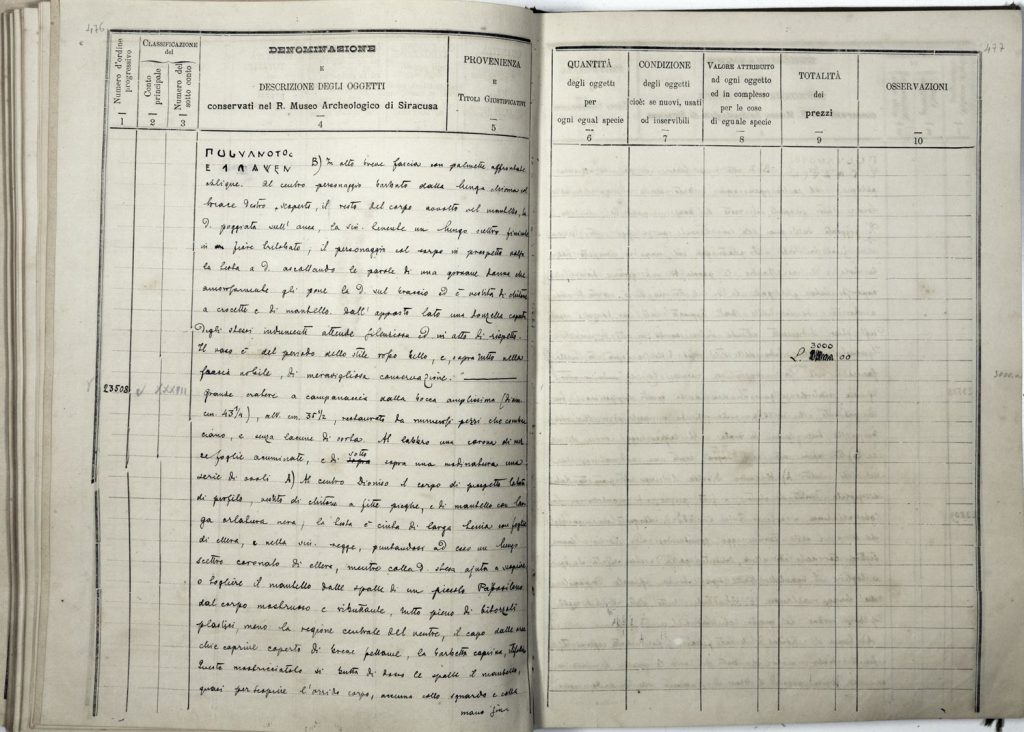 476
Numero d'ordine progressivo
CLASSIFICAZIONE
del
Conto principale
Numero del sotto conto
DENOMINAZIONE
E
DESCRIZIONE DEGLI OGGETTI
conservati nel R. Museo Archeologico di Siracusa
PROVENIENZA
E
TITOLI GIUSTIFICATIVI
1 2 3 4 5
B) In alto breve fascia con palmette affrontate
oblique. Al centro personaggio barbato dalla lunga chioma col
braccio destro scoperto, il resto del corpo avvolto nel mantello, la
D. poggiata sull' anca, la sin. tenente un lungo scettro
in fiore trilobato; il personaggio col corpo in prospetto
la testa a D. ascoltando le parole di una giovane donna che
amorosamente gli pone la D. sul braccio ed è vestita di chitone
a crocette e di mantello. Dall' opposto lato una donzella
degli stessi indumenti attende silenziosa ed in atto di rispetto.
Il vaso è del periodo dello stile rosso bello, e, sopratutto nella
faccia nobile, di meravigliosa conservazione."
23508
grande cratere a campana dalla bocca amplissima
cm. 43 1/4), alt. cm. 35 1/2, restaurato da numerosi pezzi che
ciano, e senza lacune di sorta. Al labbro una corona di
foglie acuminate, e di sotto sopra una modinatura una
serie di ovoli A) Al centro Dioniso il corpo di prospetto testa
di profilo, vestito di chitone a fitte pieghe, e di mantello con
ga orlatura nera; la testa è cinta di larga tenia con foglie
di ellera, e nella sin. regge, puntandosi ad esso un lungo
scettro coronato di ellera, mentre colla D stesa ajuta a
o togliere il mantello dalle spalle di un piccolo Paposileno
dal corpo mostruoso e ributtante, tutto pieno di
pilosi, meno la regione centrale del ventre, il capo dalle
chie caprine coperto di breve pettame, la barbetta caprina,
Questo mostricciatolo si butta di dosso le spalle il mantello,
quasi per scoprire l'orrido corpo, collo sguardo e colla
mano
477
QUANTITÀ
degli oggetti
per
ogni egual specie
CONDIZIONE
degli oggetti
cioè: se nuovi, usati
od inservibili
VALORE ATTRIBUTO
ad ogni oggetto
ed in complesso
per le cose
di eguale specie
TOTALITÀ
dei
prezzi
OSSERVAZIONI
6 7 8 9 10
3000
L. 00